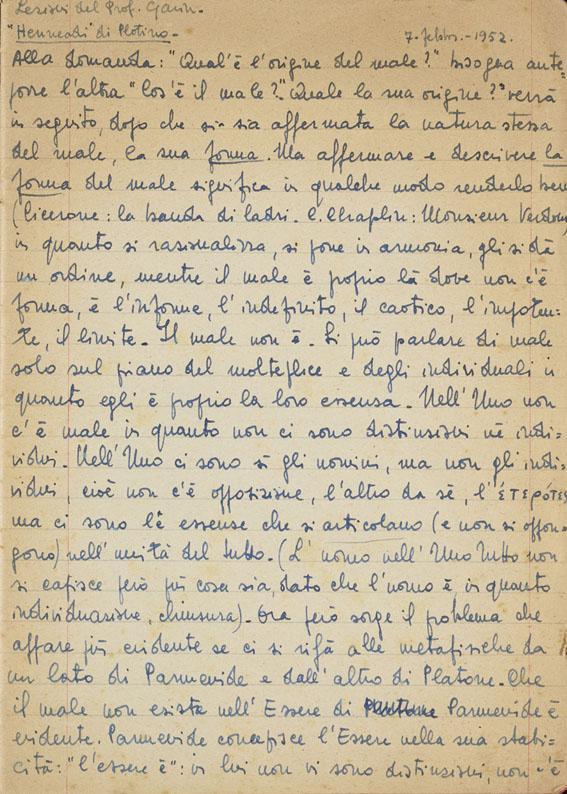 Lezioni del Prof. Garin -
"Henneadi" di Plotino - 7. febbr. - 1952.
Alla domanda: "Qual'è l'origine del male?" bisogna ante=
porre l'altra "Cos'è il male?". Quale la sua origine?" verrà
in seguito, dopo che si sia affermata la natura stessa
del male, la sua forma. Ma affermare e descrivere la
forma del male significa in qualche modo renderlo bene
(Cicerone: la banda di ladri. C. Chaplin: Monsieur Verdoux)
in quanto si razionalizza, si pone in armonia, gli si dà
un ordine, mentre il male è proprio là dove non c'è
forma, è l'informe, l'indefinito, il caotico, l'impoten-
te, il limite - Il male non è. Si può parlare di male
solo sul piano del molteplice e degli individuali in
quanto egli è proprio la loro essenza. Nell'Uno non
c'è male in quanto non ci sono distinzioni nè indi-
vidui. Nell'Uno ci sono sì gli uomini, ma non gli indi-
vidui, cioè non c'è opposizione, l'altro da sè, l'ἑτερότες
ma ci sono le essenze che si articolano (e non si oppon-
gono) nell'unità del tutto. (L'uomo nell'Uno Tutto non
si capisce però più cosa sia, dato che l'uomo è, in quanto
individuazione, chiusura). Ora però sorge il problema che
appare più evidente se ci si rifà alle metafisiche da
un lato di Parmenide e dall'altro di Platone. Che
il male non esista nell'Essere di Parmenide è
evidente. Parmenide concepisce l'Essere nella sua stati-
cità: "l'essere è": in lui non vi sono distinzioni, non c'è